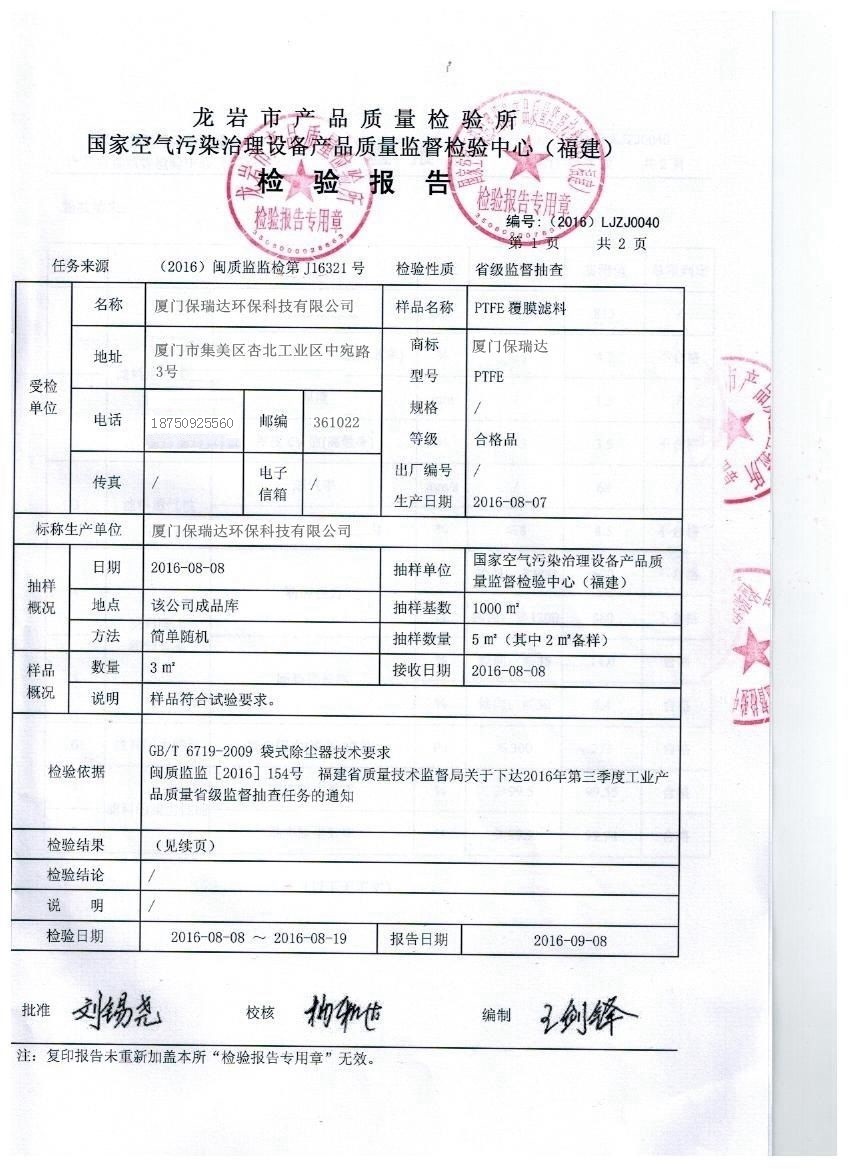 龙岩市产品质量检验所
国家空气污染治理设备产品质量监督检验中心（福建）
检验报告
检验报告专用章
检验报告专用章
编号：（2016）LJZJ0040
第 1 页 共 2 页
任务来源 （2016）闽质监监检第J16321号 检验性质 省级监督抽查
受检单位
名称 厦门保瑞达环保科技有限公司 样品名称 PTFE 覆膜滤料
地址 厦门市集美区杏北工业区中宛路
3号
电话 18750925560 邮编 361022
传真 / 电子信箱 /
商标 厦门保瑞达
型号 PTFE
规格 /
等级 合格品
出厂编号 /
生产日期 2016-08-07
标称生产单位 厦门保瑞达环保科技有限公司
抽样概况
日期 2016-08-08 抽样单位 国家空气污染治理设备产品质
量监督检验中心（福建）
地点 该公司成品库 抽样基数 1000 ㎡
方法 简单随机 抽样数量 5 ㎡（其中 2 ㎡备样）
样品概况
数量 3 ㎡ 接收日期 2016-08-08
说明 样品符合试验要求。
检验依据
GB/T 6719-2009 袋式除尘器技术要求
闽质监监［2016］154号 福建省质量技术监督局关于下达2016年第三季度工业产
品质量省级监督抽查任务的通知
检验结果 （见续页）
检验结论 /
说 明 /
检验日期 2016-08-08 ～ 2016-08-19 报告日期 2016-09-08
批准 刘锡尧 校核 编制 王剑锋
注：复印报告未重新加盖本所“检验报告专用章”无效。